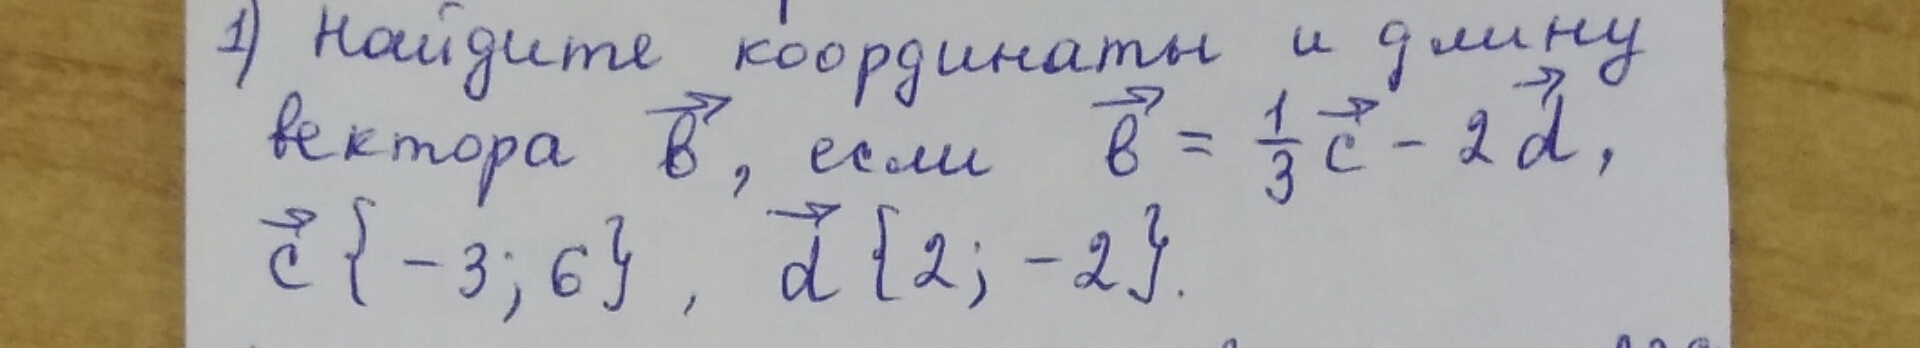 1) Найдите координаты и длину
вектора b⃗, если b⃗ = 1/3 c⃗ - 2d⃗,
c⃗ {-3; 6}, d⃗ {2; -2}.